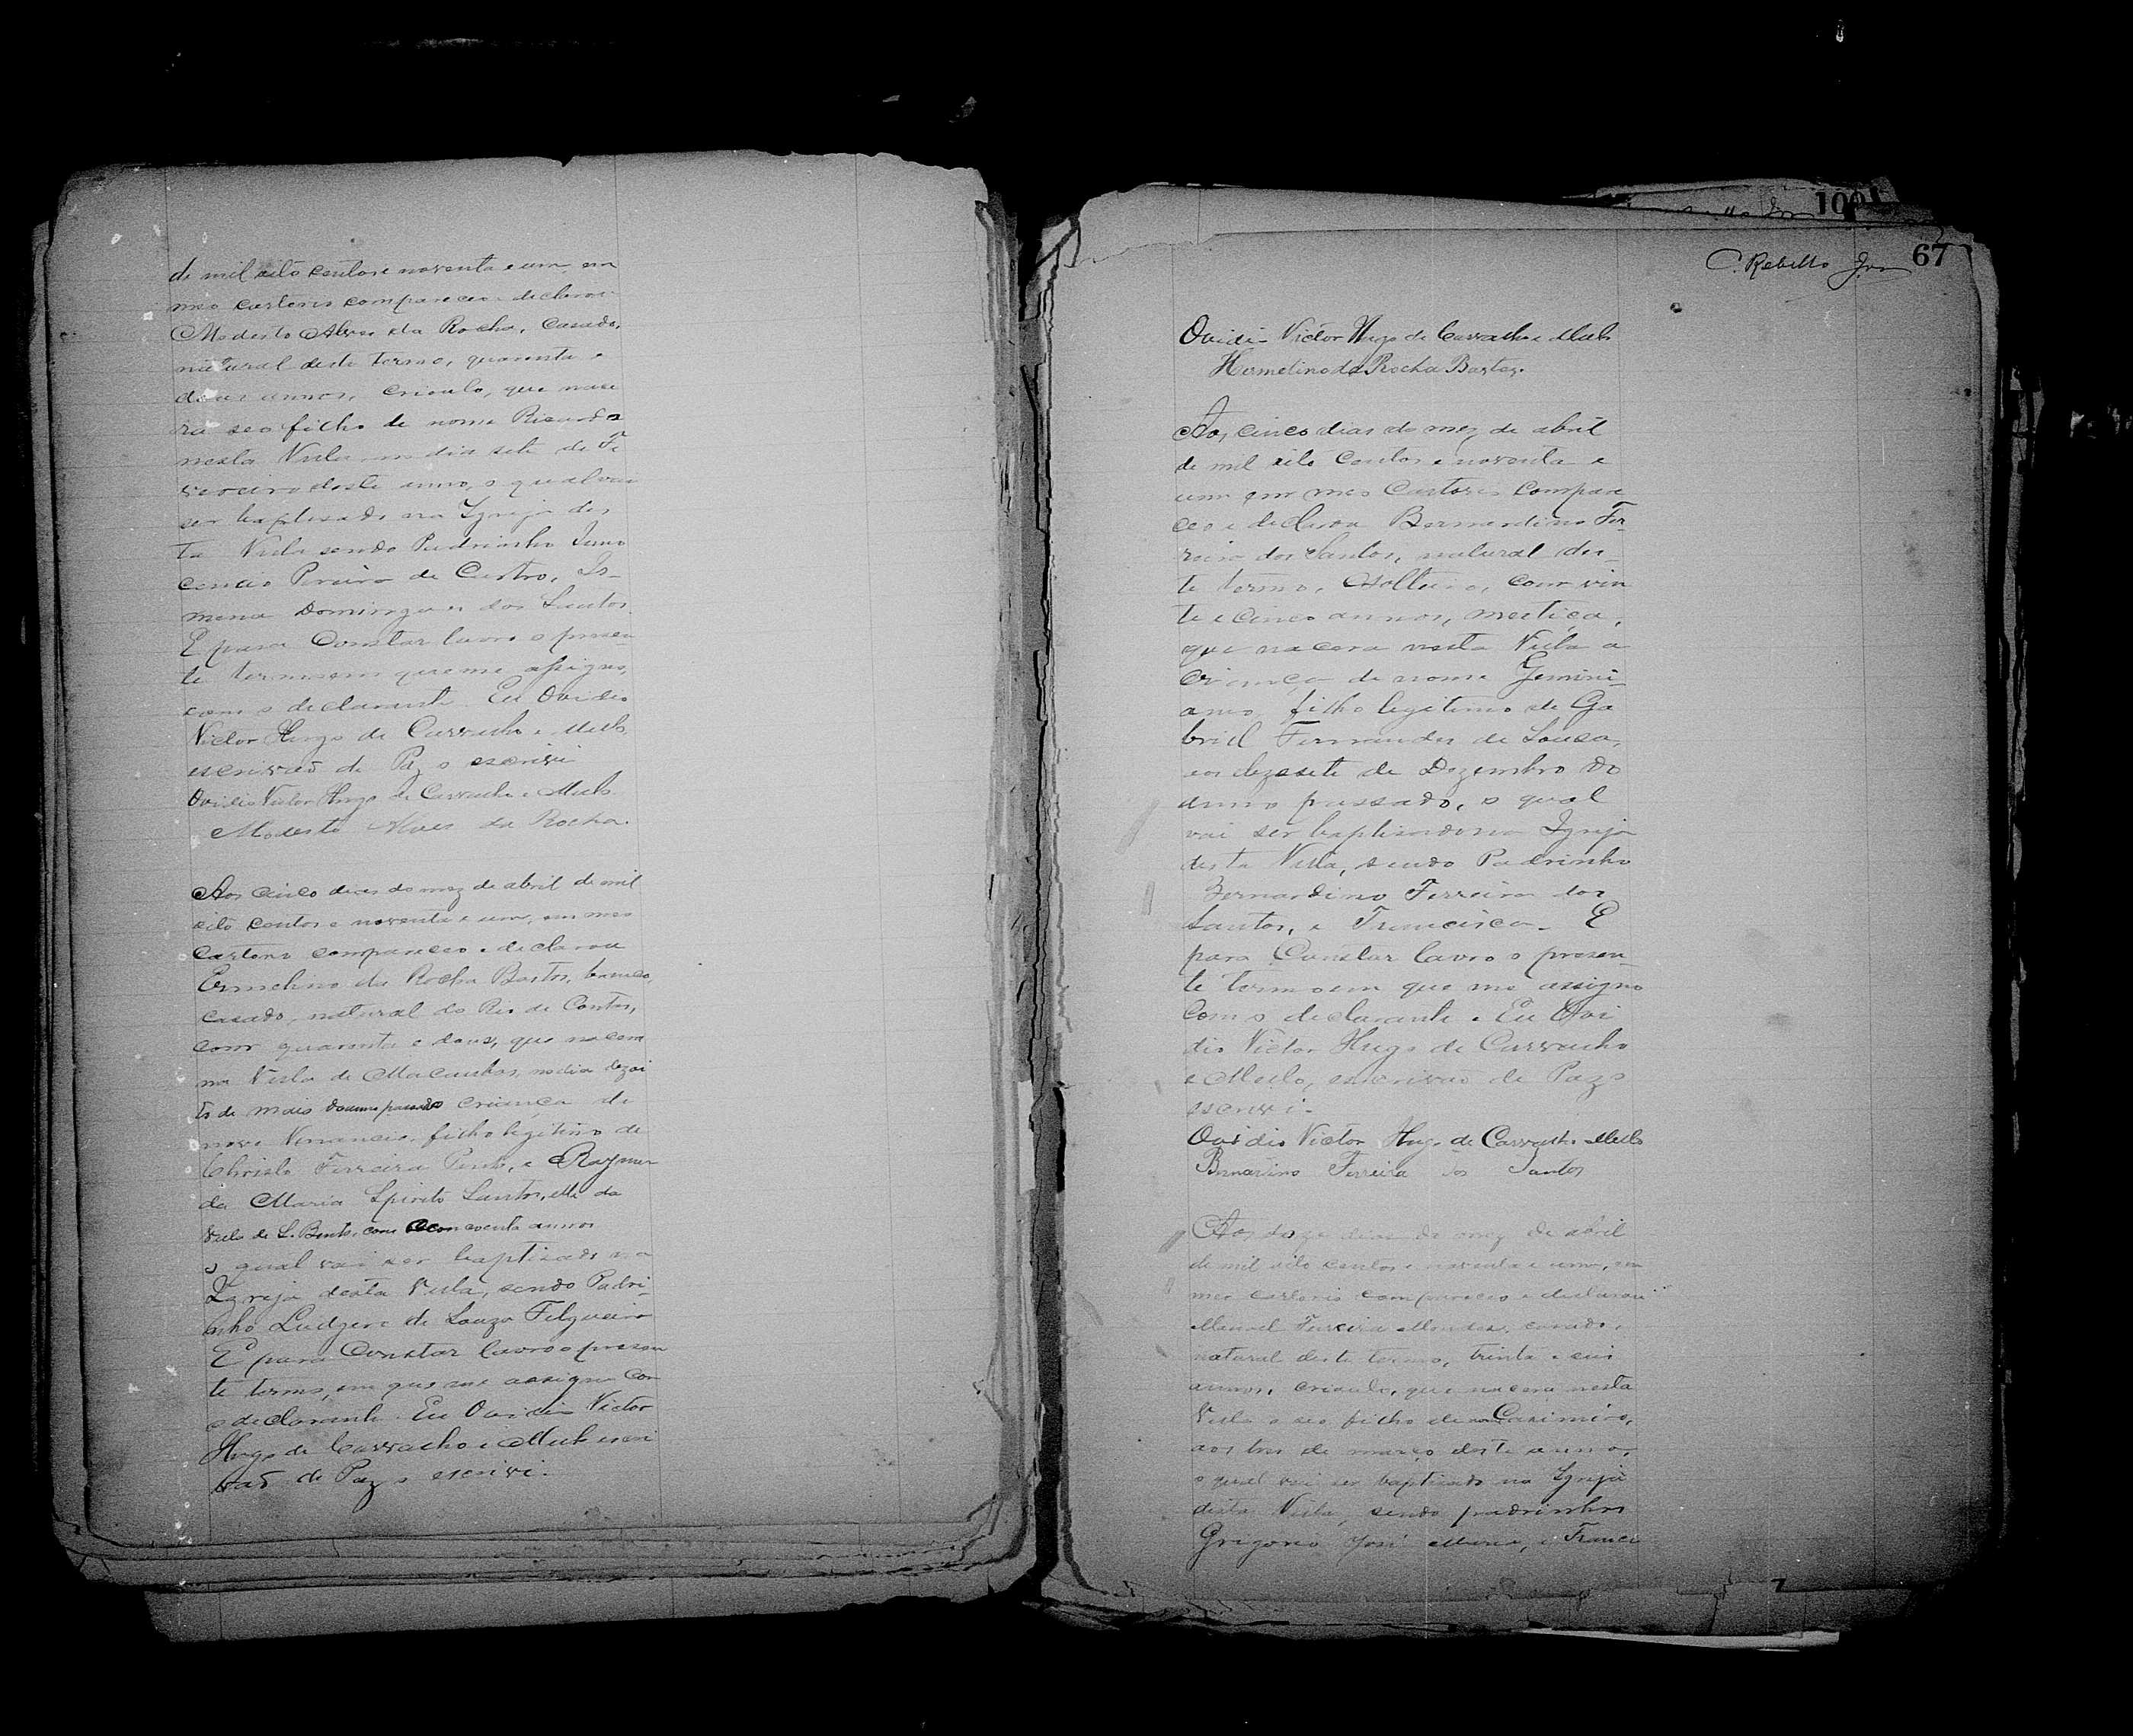 de mil oito centos e noventa e um, em
meo cartorio compareceo e declarou
Modesto Alves da Rocha, casado,
natural deste termo, quarenta e
dous annos, crioulo, que nasce
ra seo filho de nome Ricardo
nesta Villa no dia sete de Fe
vereiro deste anno, o qual vai
ser baptisado na Igreja des
ta Villa sendo Padrinho Inno
cencio Pereira de Castro,
Domingues dos Santos.
E para Constar lavro o presen
te termo em que me assigno,
com o declarante. Eu Ovidio
Victor Hugo de Carvalho e Mello,
escrivaõ de Paz o escrivi
Ovidio Victor Hugo de Carvalho e Mello
Modesto Alves da Rocha.
Aos cinco dias do mez de abril de mil
oito centos e noventa e um, em meo
cartorio compareceo e declarou
Ermelino da Rocha Bastos, branco,
casado, natural do Rio de Contas,
com quarenta e dous, que nacera
na Villa de Macaubas, no dia dezoi
to de maio do anno passado criança de
nome Venancio, filho legitimo de
Christo Ferreira Pinto, e Raymun
da Maria Spirito Santos, elle da
Villa de S. Bento, com cincoenta annos
o qual vai ser baptizado na
Igreja desta Villa, sendo Padri
nho Ludgero de Souza Filgueira
E para Constar lavro o presen
te termo, em que me assigno com
o declarante. Eu Ovidio Victor
Hugo de Carvalho e Mello escri
vaõ de Paz o escrivi.
C. Rebello Jor 67
100
Ovidio Victor Hugo de Carvalho e Mello
Hermelino da Rocha Bastos.
Aos cinco dias do mez de abril
de mil oito centos e noventa e
um em meo Cartorio compare
ceo e declarou Bernardino Fer
reira dos Santos, natural des
te termo, solteiro, com vin
te e cinco annos, mestiço,
que nacera nesta Villa a
criança de nome Gemini
ano filho legitimo de Ga
briel Fernandes de Souza,
aos dezesete de Dezembro do
anno passado, o qual
vai ser baptisado na Igreja
desta Villa, sendo Padrinho
Bernardino Ferreira dos
Santos, e Francisca. E
para Constar lavro o presen
te termo em que me assigno
com o declarante. Eu Ovi
dio Victor Hugo de Carvalho
e Mello, escrivaõ de Paz o
escrivi.
Ovidio Victor Hugo de Carvalho e Mello
Bernardino Ferreira dos Santos
Aos doze dias do mez de abril
de mil oito centos e noventa e um, em
meo cartorio compareceo e declarou
Manoel Ferreira Mendes, casado,
natural deste termo, trinta e seis
annos, crioulo, que nacera nesta
Villa o seo filho de nome Casimiro,
aos tres de março deste anno,
o qual vai ser baptisado na Igreja
desta Villa, sendo padrinhos
Grigorio José, e Franci